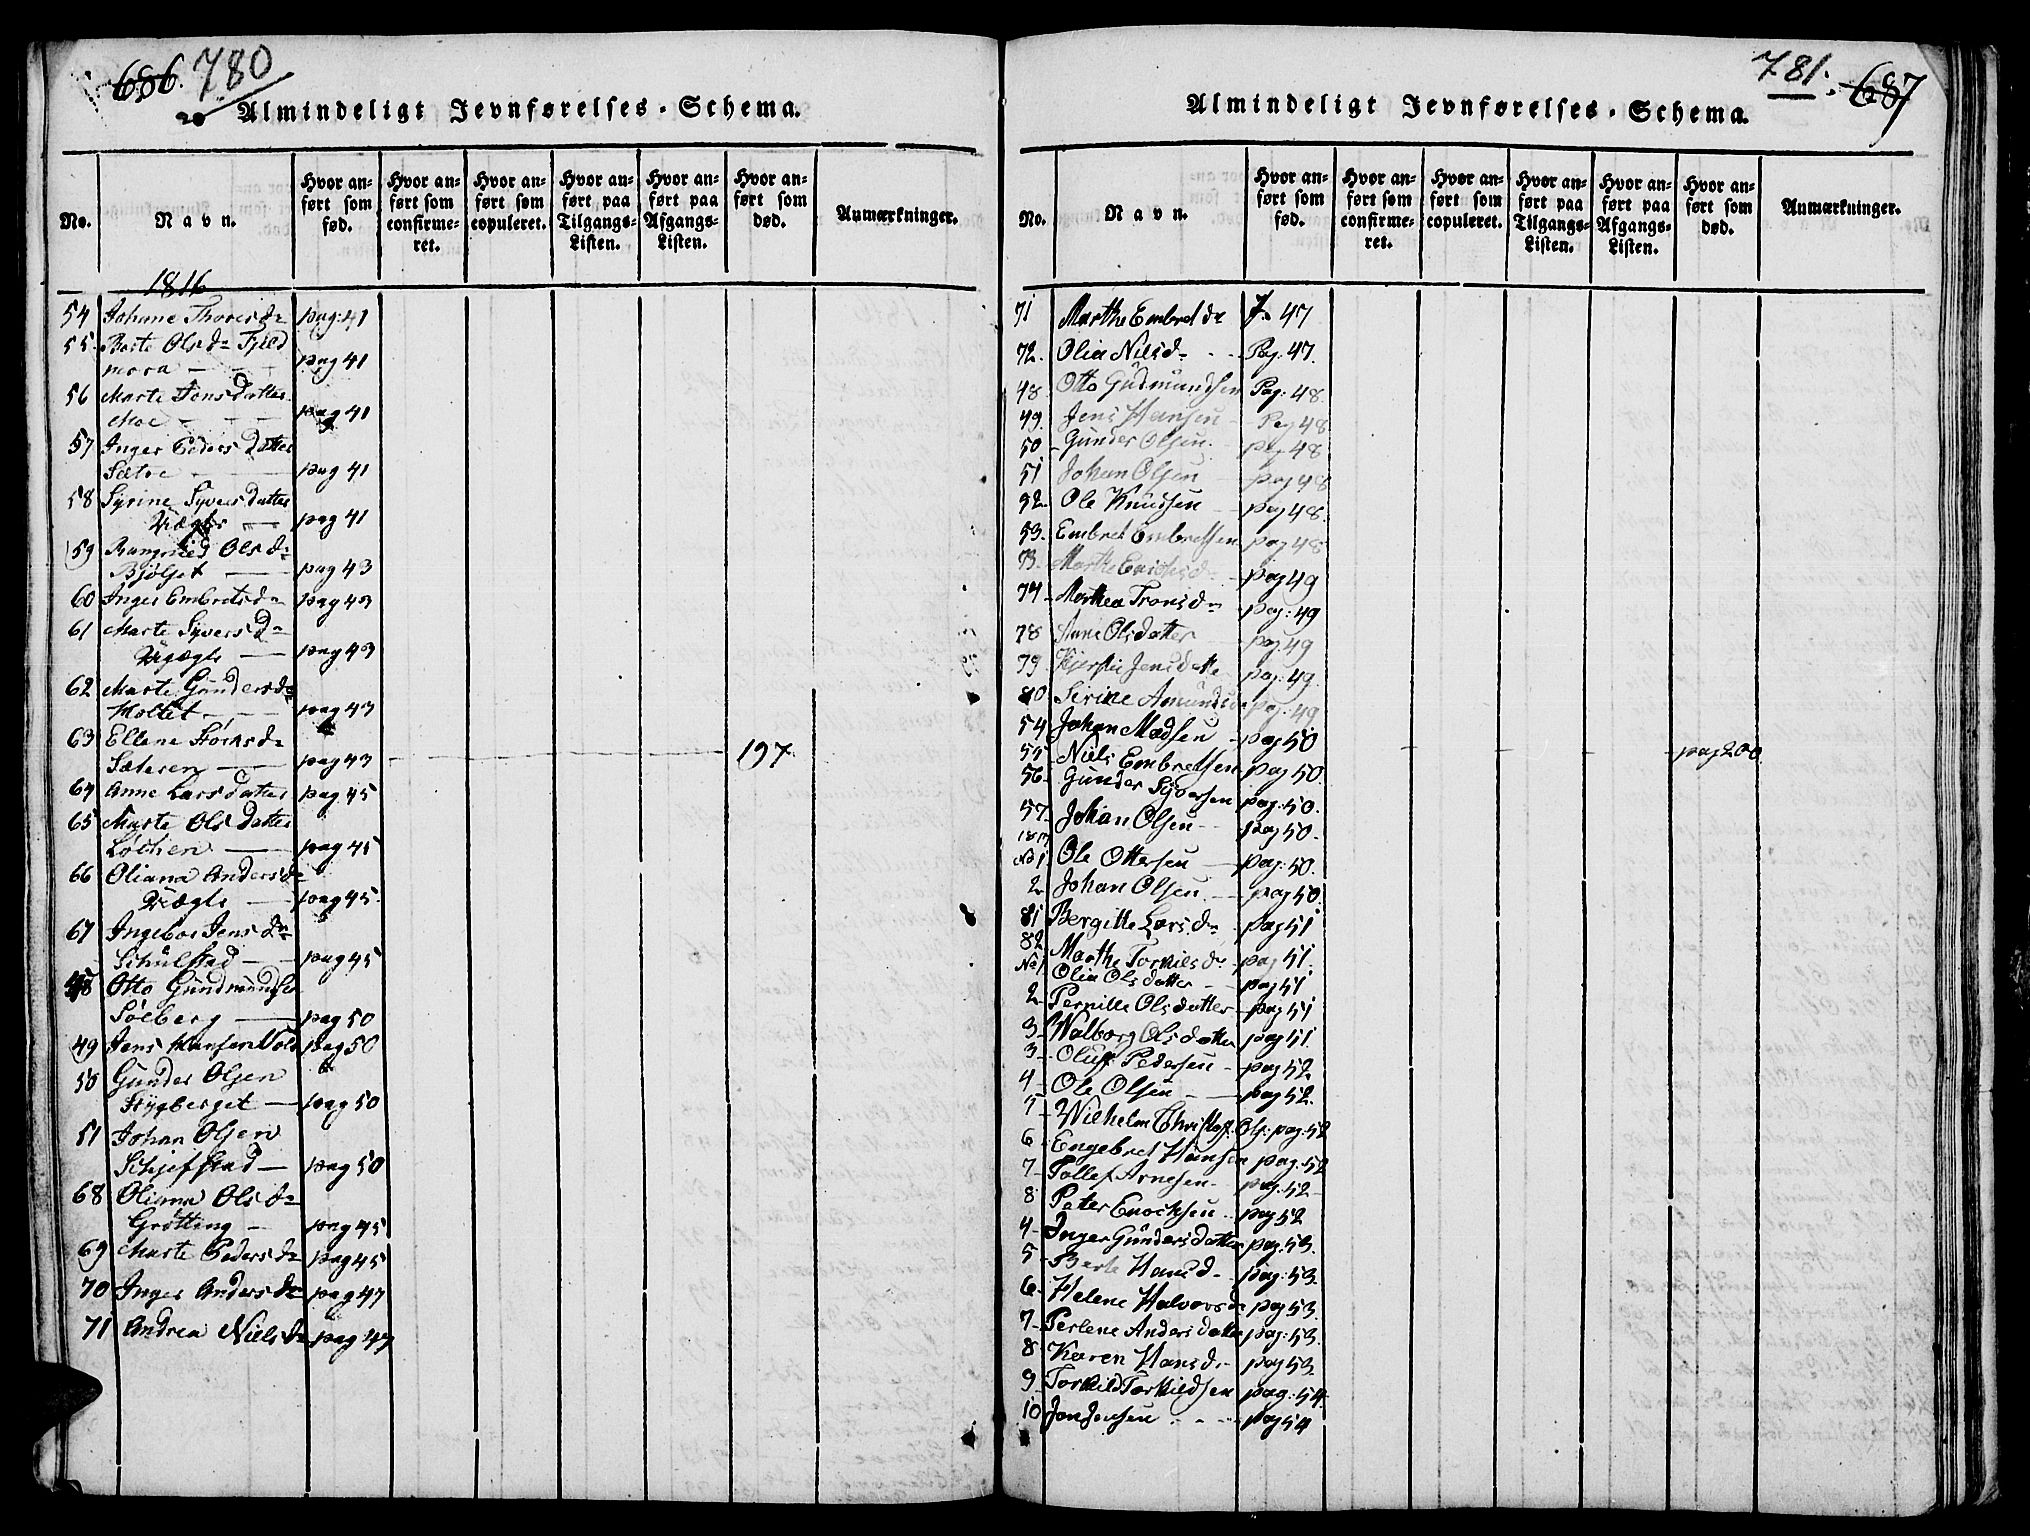 686. 780
Almindeligt Jevnførelses-Schema.
No.
Navn.
Hvor anført som fød.
Hvor anført som confirmeret.
Hvor anført som copuleret.
Hvor anført paa Tilgangs-Listen.
Hvor anført paa Afgangs-Listen.
Hvor anført som død.
Anmærkninger.
1816
54 Johane Thoresd. pag: 41
55. Berte Olsd. Fjeld
mora pag 41
56 Marte Jonsdatter
Moe pag 41
57 Inger Peders Datter
Sætre pag 41
58 Syrine Syvers datter
pag 41
59 Olsd.
Bjølset pag 43
60 Inger Embretsd. pag 43
61 Marte Syvers D.
pag 43
62 Marte Gundersd.
Moltet pag 43
63 Ellene d.
Sæteren pag 43 197.
64 Anne Lars datter pag 45
65 Marte Ols datter
Løchen pag 45
66 Oliana Andersd.
pag 45.
67 Ingebor Jens D.
Schulstad pag 45
48 Otto Gundmundsen
Solberg pag 50
49 Jens Hansen Vold pag 50
50 Gunder Olsen
Stygberget pag 50
51 Johan Olsen
Schjefstad pag 50
68 Oliana Ols d.
Grøtting pag 45
69 Marte Peders d. pag 45
70 Inger Anders d. pag 47
71 Andrea Niels d. pag 47
781. 687
Almindeligt Jevnførelses-Schema.
No.
Navn.
Hvor anført som fød.
Hvor anført som confirmeret.
Hvor anført som copuleret.
Hvor anført paa Tilgangs-Listen.
Hvor anført paa Afgangs-Listen.
Hvor anført som død.
Anmærkninger.
71 Marthe Embret d. 47
72. Olia Nilsd. Pag. 47.
48. Otto Gudmundsen Pag. 48.
49. Jens Hansen Pag 48
50 Gunder Olsen pag 48
51 Johan Olsen pag 48
52. Ole Knudsen pag 48.
53. Embret Embretsen pag 48
73. Marthe pag 49
74 Marthea Tronsd. pag: 49
78 Anne Olsdatter pag 49
79 Kjerstie Jensdatte pag. 49.
80 Sirine Amundsd. pag. 49
54 Johan Madsen pag 50
55 Niels Embretsen pag 50. pag 200
56. Gunder Syversen pag. 50.
57. Johan Olsen pag 50.
1817
No 1 Ole Ottersen pag. 50.
2 Johan Olsen pag 50
81 Bergitte Larsd. pag 51
82 Marthe Torkilsd. pag 51.
No 1 Olia Olsdatter pag 51
2 Pernille Olsdatter pag 51
3 Walborg Olsdatter pag 51
3 Oluf Pedersen pag 52
4 Ole Olsen pag 52.
Wilhelm Christof. Ols. pag. 52
6 Engebret Hansen pag. 52
7 Tollef Arnesen pag. 52
8 Peter Enochsen pag 52
4 Inger Gundersdatter pag. 53.
5 Berte Hansd. pag. 53.
6 Helene Halvorsd. pag 53.
7 Perlene Andersdatter pag. 53.
8 Karen Hansd. pag 53.
9 Torkild Torkildsen pag. 54.
10 Jon Jensen pag 54